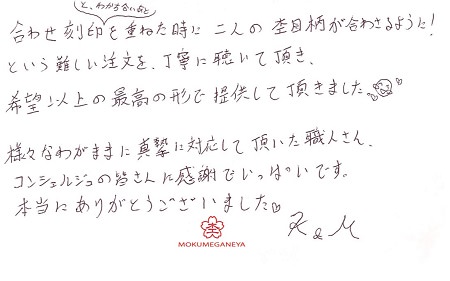 と、わかち合い心と
合わせ刻印を重ねた時に二人の杢目柄が合わさるように!
という難しい注文を、丁寧に聴いて頂き、
希望以上の最高の形で提供して頂きました
様々なわがままに真摯に対応して頂いた職人さん、
コンシェルジュの皆さんに感謝でいっぱいです。
本当にありがとうございました
MOKUMEGANEYA
K & M